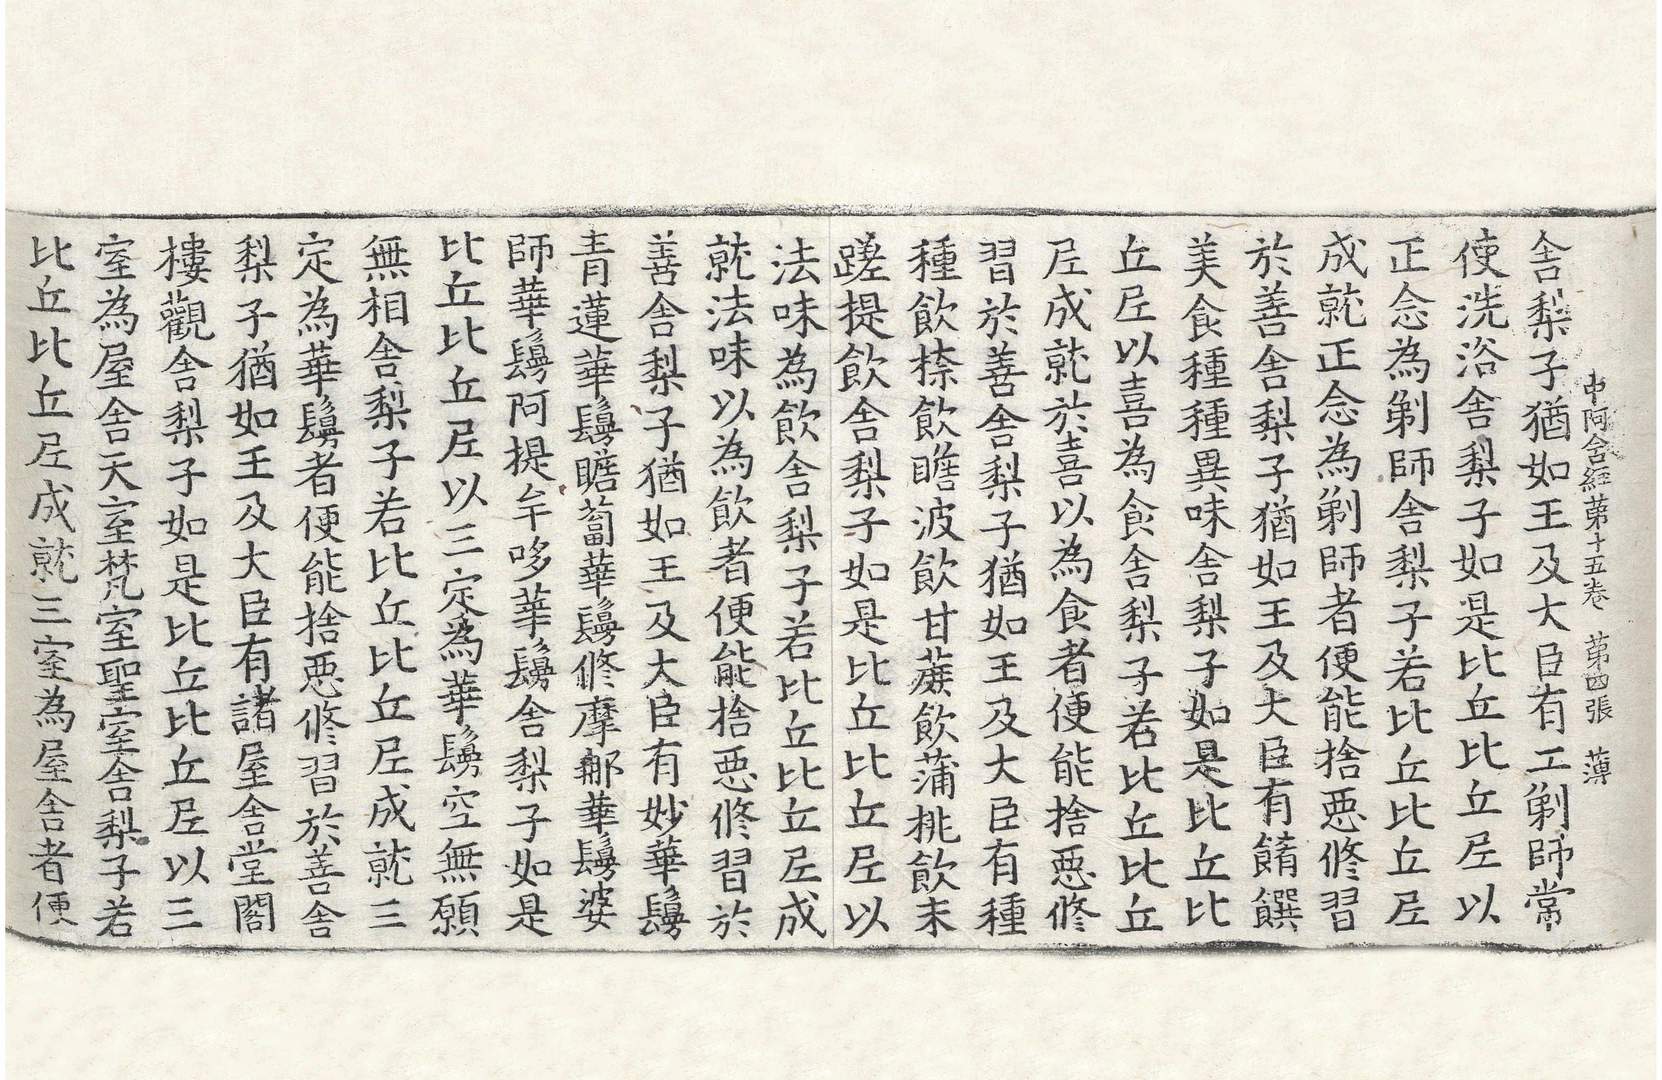 中阿含經第十五卷 第四張 薄
舎梨子猶如王及大臣有工剃師常
使洗浴舎梨子如是比丘比丘尼以
正念為剃師舎梨子若比丘比丘尼
成就正念為剃師者便能捨惡修習
於善舎梨子猶如王及大臣有餚饌
美食種種異味舎梨子如是比丘比
丘尼以喜為食舎梨子若比丘比丘
尼成就於喜以為食者便能捨惡修
習於善舎梨子猶如王及大臣有種
種飲㮈飲瞻波飲甘蔗飲蒲桃飲末
蹉提飲舎梨子如是比丘比丘尼以
法味為飲舎梨子若比丘比丘尼成
就法味以為飲者便能捨惡修習於
善舎梨子猶如王及大臣有妙華鬘
青蓮華鬘瞻蔔華鬘修摩那華鬘婆
師華鬘阿提牟哆華鬘舎梨子如是
比丘比丘尼以三定為華鬘空無願
無相舎梨子若比丘比丘尼成就三
定為華鬘者便能捨惡修習於善舎
梨子猶如王及大臣有諸屋舎堂閣
樓觀舎梨子如是比丘比丘尼以三
室為屋舎天室梵室聖室舎梨子若
比丘比丘尼成就三室為屋舎者便